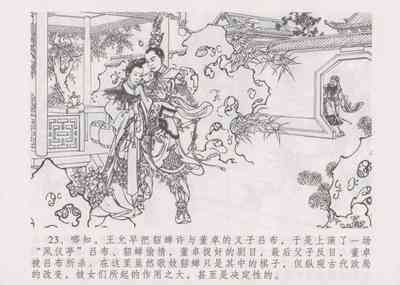 23、哪知，王允早把貂蝉许与董卓的义子吕布，于是上演了一场
“凤仪亭”吕布、貂蝉偷情，董卓捉奸的剧目，最后父子反目，董卓
被吕布所杀。在这里虽然歌妓貂蝉只是其中的棋子，但纵观古代政局
的改变，彼女们所起的作用之大，甚至是决定性的。